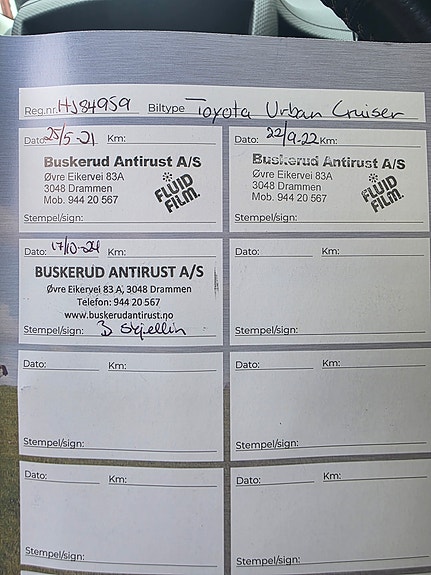 Reg.nr. HJ84959 Biltype Toyota Urban Cruiser
Dato: 25/5-21 Km:
Buskerud Antirust A/S
Øvre Eikervei 83A
3048 Drammen
Mob. 944 20 567
FLUID
FILM
Stempel/sign:
Dato: 22/9-22 Km:
Buskerud Antirust A/S
Øvre Eikervei 83A
3048 Drammen
Mob. 944 20 567
FLUID
FILM
Stempel/sign:
Dato: 17/10-24 Km:
BUSKERUD ANTIRUST A/S
Øvre Eikervei 83 A, 3048 Drammen
Telefon: 944 20 567
www.buskerudantirust.no
Stempel/sign: B
Dato: Km:
Stempel/sign:
Dato: Km:
Stempel/sign:
Dato: Km:
Stempel/sign:
Dato: Km:
Stempel/sign:
Dato: Km:
Stempel/sign: